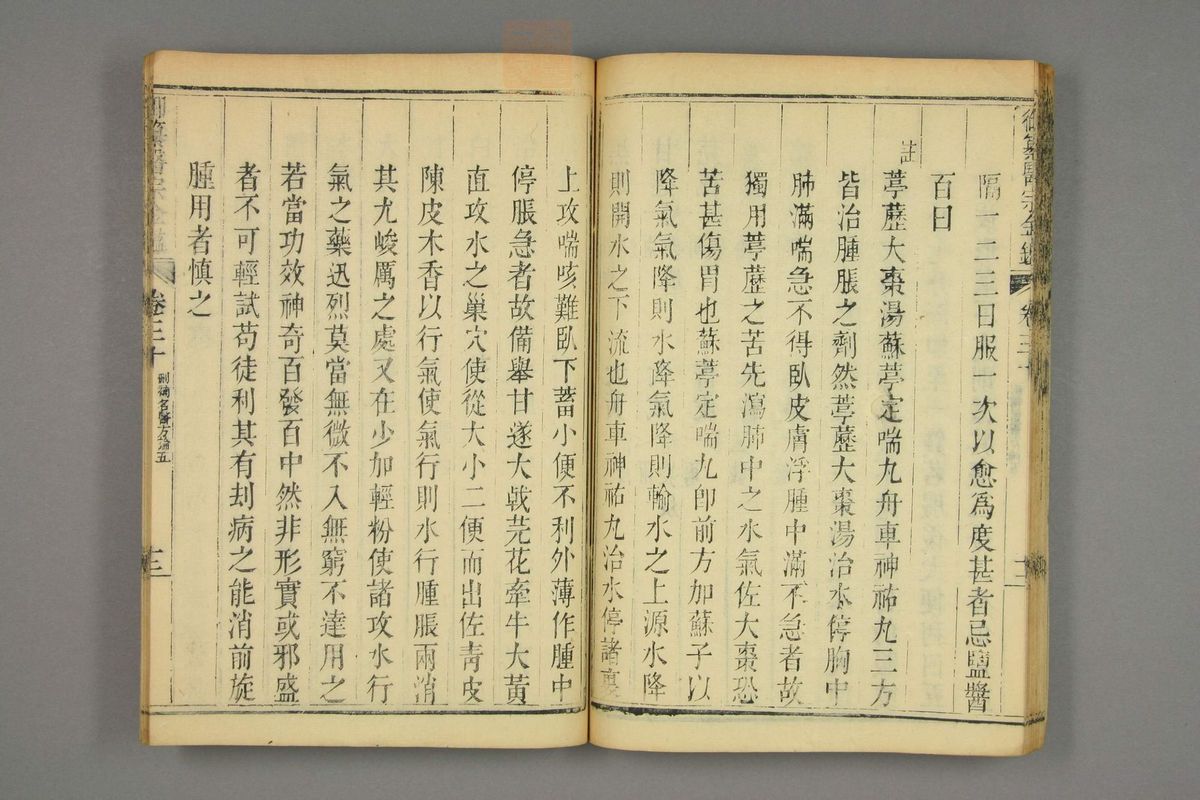 御纂醫宗金鑑 卷三十
隔一二三日服一次以愈為度甚者忌鹽醬
百日
註
葶藶大棗湯蘇葶定喘丸舟車神祐丸三方
皆治腫脹之劑然葶藶大棗湯治水停胸中
肺滿喘急不得臥皮膚浮腫中滿不急者故
獨用葶藶之苦先瀉肺中之水氣佐大棗恐
苦甚傷胃也蘇葶定喘丸即前方加蘇子以
降氣氣降則水降氣降則輸水之上源水降
則開水之下流也舟車神祐丸治水停諸裏
上攻喘咳難臥下蓄小便不利外薄作腫中
停脹急者故備舉甘遂大戟芫花牽牛大黃
直攻水之巢穴使從大小二便而出佐青皮
陳皮木香以行氣使氣行則水行腫脹兩消
其尤峻厲之處又在少加輕粉使諸攻水行
氣之藥迅烈莫當無微不入無窮不達用之
若當功效神奇百發百中然非形實或邪盛
者不可輕試苟徒利其有刦病之能消前旋
腫用者慎之
御纂醫宗金鑑 卷三十 刪補名醫方論五 十三